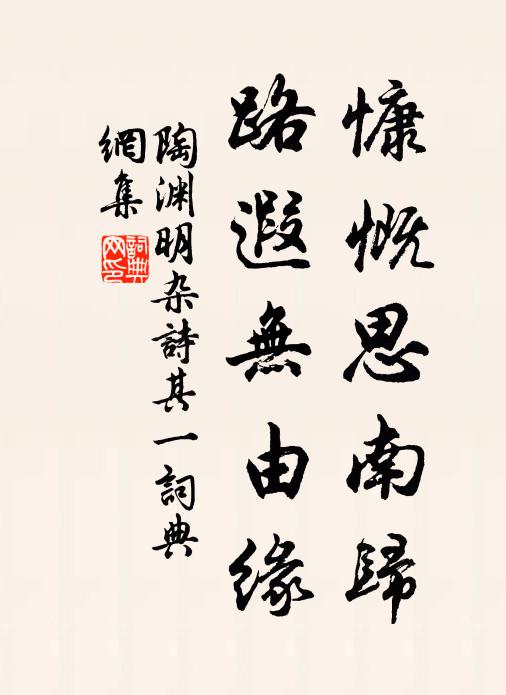 慷慨思南歸
路遐無由緣
陶淵明杂詩其一詞典
網集
詞典网印